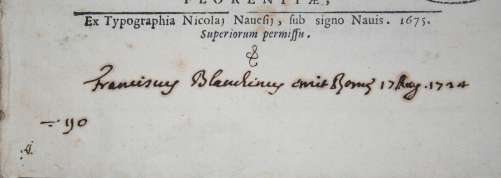 FLORENTIÆ,
Ex Typographia Nicolaj Nauesij, sub signo Nauis. 1675.
Superiorum permissu.
Franciscus Blanchinus emit Romæ 17 Aug. 1724
÷ 90